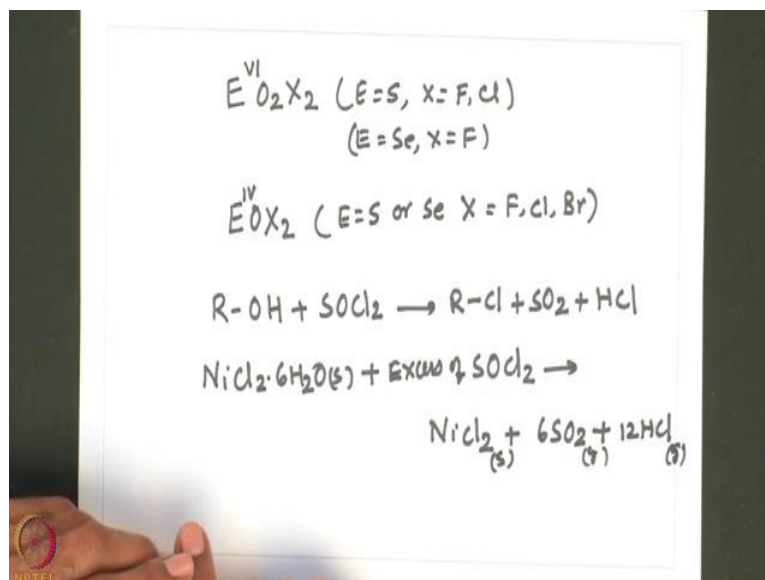 E^VI O2X2 (E=S, X=F, Cl)
(E=Se, X=F)
E^IV OX2 (E=S or Se X=F, Cl, Br)
R-OH + SOCl2 → R-Cl + SO2 + HCl
NiCl2·6H2O(s) + Excess of SOCl2 →
NiCl2(s) + 6SO2(g) + 12HCl(g)
NPTEL